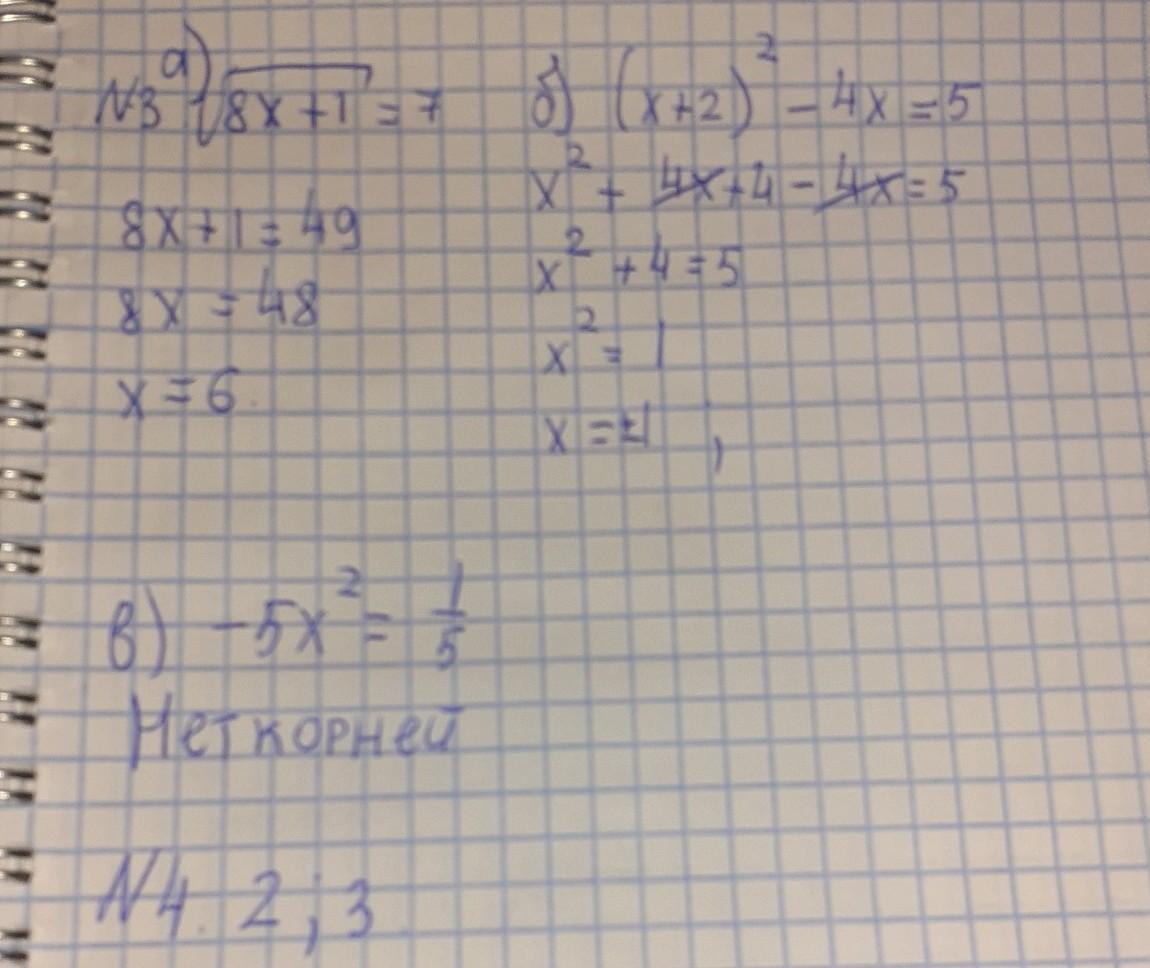 №3 а) √(8x+1) = 7
8x+1 = 49
8x = 48
x = 6.
б) (x+2)² - 4x = 5
x² + 4x+4 - 4x = 5
x² + 4 = 5
x² = 1
x = ±1 ,
в) -5x² = 1/5
Нет корней
N4. 2 ; 3